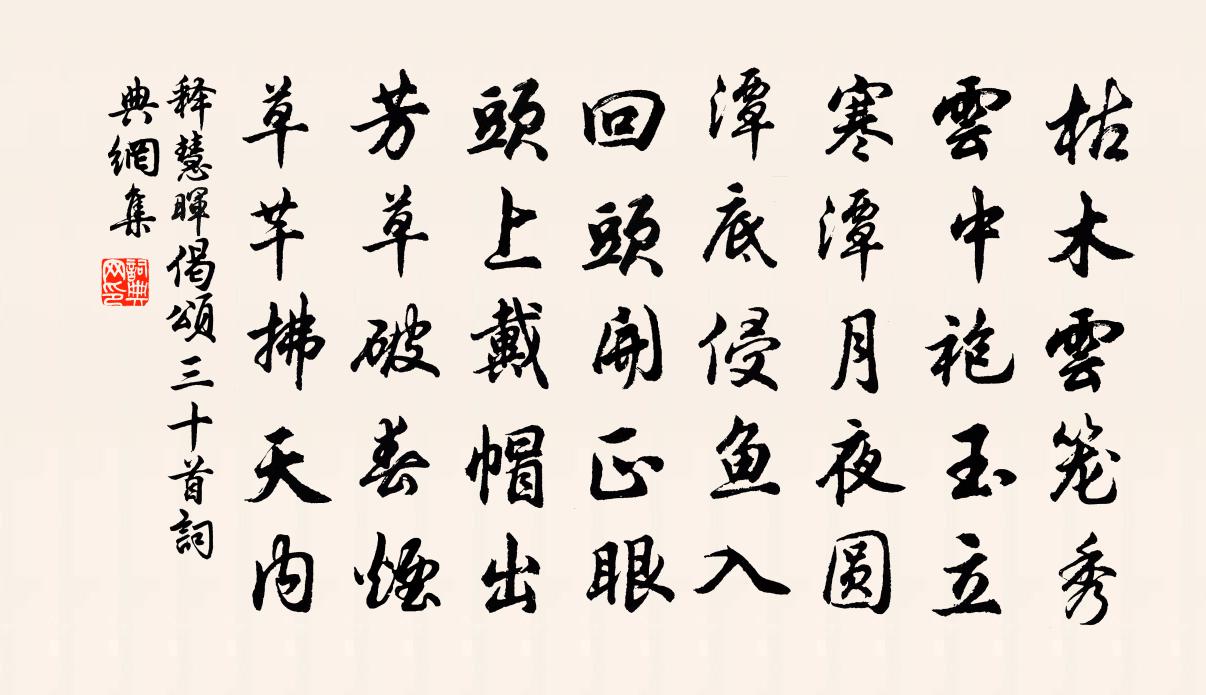 枯木雲笼秀
雲中袍玉立
寒潭月夜圆
潭底侵鱼入
回頭開正眼
頭上戴帽出
芳草破春煙
草芊拂天内
释慧暉偈頌三十首詞
典網集
詞典
网印